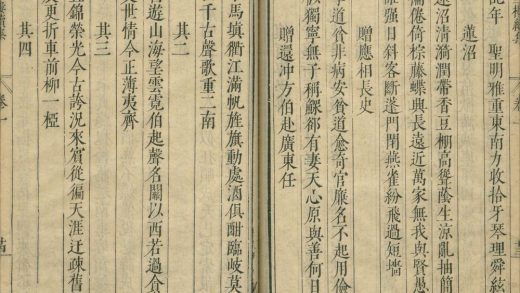 記年　聖明雅重東南力收拾牙琴理舜絃
蓮沼
沼清漪澗帶香豆棚高聳蔭生涼亂抽簡
倦倚棕藤蝶與長遠近萬家無我與賢愚
强日斜客斷蓬門閉燕雀紛飛過短墻
贈應相長史
道貧非病安貧道愈奇官廉名不起用儉
獨寧無子稱鰥卻有妻天心原與善何日
贈還冲方伯赴廣東任
馬塡衢江滿帆旌旗動處酒俱酣臨岐莫
千古聲歌重二南
其二
遊山海望雲霓伯起聲名關以西若過貪
世情今正薄夷齊
其三
錦榮光今古誇況來賓從徧天涯迂疎舊
更折車前柳一椏
其四
卷一